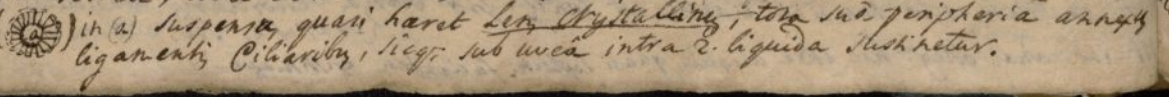 ) in (a) suspensa, quasi hæret Lens Crystallinus, tota suâ peripheriâ annexus
ligamentis Ciliaribus, sicq; sub uveâ intra 2. liquida sustinetur.